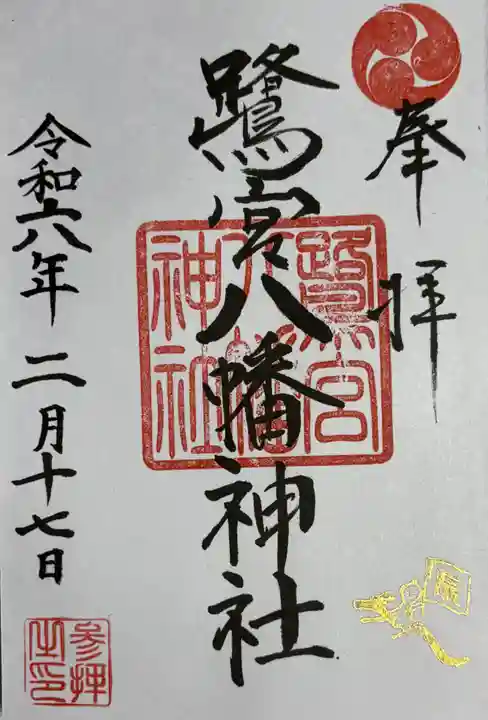 奉拝
鷺宮八幡神社
鷺宮八幡神社
令和六年二月十七日
参拝之印
辰